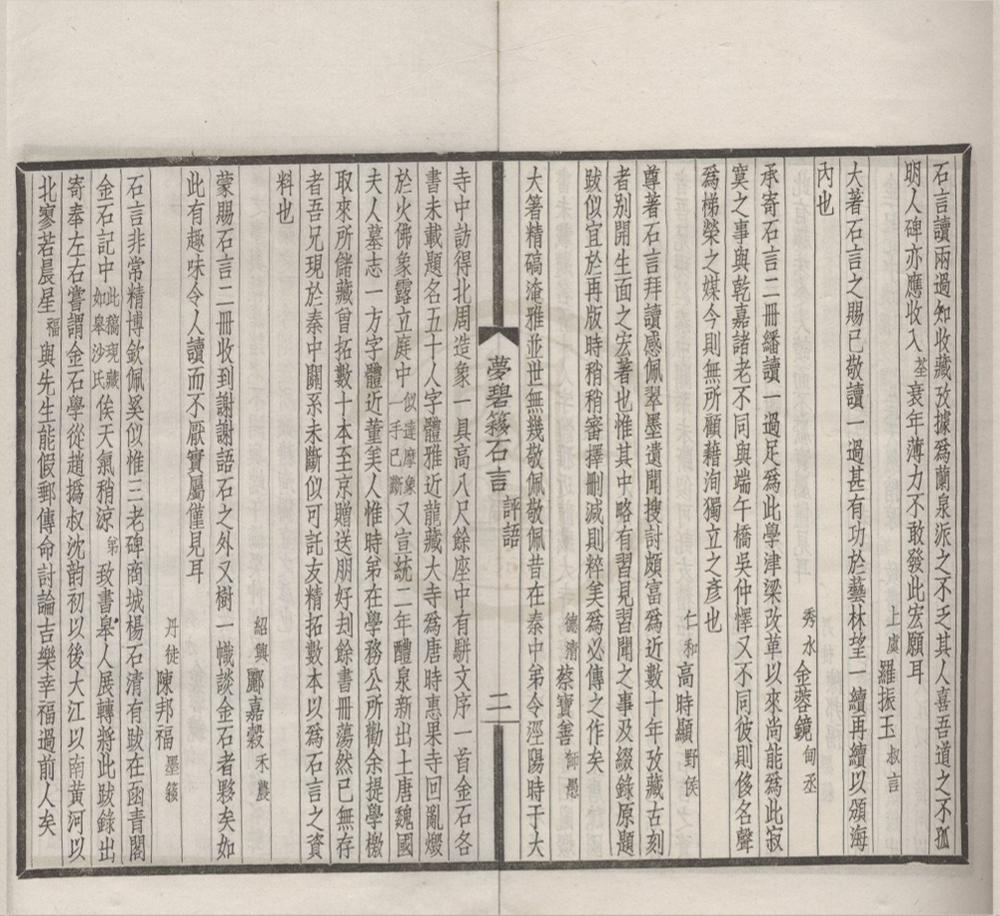 石言讀兩過知收藏攷據爲蘭泉派之不乏其人喜吾道之不孤
明人碑亦應收入荃衰年薄力不敢發此宏願耳
上虞羅振玉叔言
大著石言之賜已敬讀一過甚有功於藝林望一續再續以頒海
內也
秀水金蓉鏡甸丞
承寄石言二冊繙讀一過足爲此學津梁改革以來尚能爲此寂
寞之事與乾嘉諸老不同與端午橋吳仲懌又不同彼則侈名聲
爲梯榮之媒今則無所顧藉洵獨立之彥也
仁和高時顯野侯
尊著石言拜讀感佩翠墨遺聞搜討頗富爲近數十年攷藏古刻
者别開生面之宏著也惟其中略有習見習聞之事及綴錄原題
跋似宜於再版時稍稍審擇刪減則粹美爲必傳之作矣
德清蔡寶善師愚
大箸精碻淹雅並世無幾敬佩敬佩昔在秦中弟令涇陽時于大
夢碧簃石言
評語
二
寺中訪得北周造象一具高八尺餘座中有駢文序一首金石各
書未載題名五十人字體雅近龍藏大寺爲唐時惠果寺回亂燬
於火佛象露立庭中似達摩象一手已斷又宣統二年醴泉新出土唐魏國
夫人墓志一方字體近董美人惟時弟在學務公所勸余提學檄
取來所儲藏曾拓數十本至京贈送朋好刦餘書冊蕩然已無存
者吾兄現於秦中關系未斷似可託友精拓數本以爲石言之資
料也
紹興酈嘉穀禾農
蒙賜石言二冊收到謝謝語石之外又樹一幟談金石者夥矣如
此有趣味令人讀而不厭實屬僅見耳
丹徒陳邦福墨簃
石言非常精博欽佩奚似惟三老碑商城楊石清有跋在函青閣
金石記中此稿現藏如皋沙氏俟天氣稍涼弟致書皋人展轉將此跋錄出
寄奉左右嘗謂金石學從趙撝叔沈韵初以後大江以南黄河以
北寥若晨星福與先生能假郵傳命討論吉樂幸福過前人矣